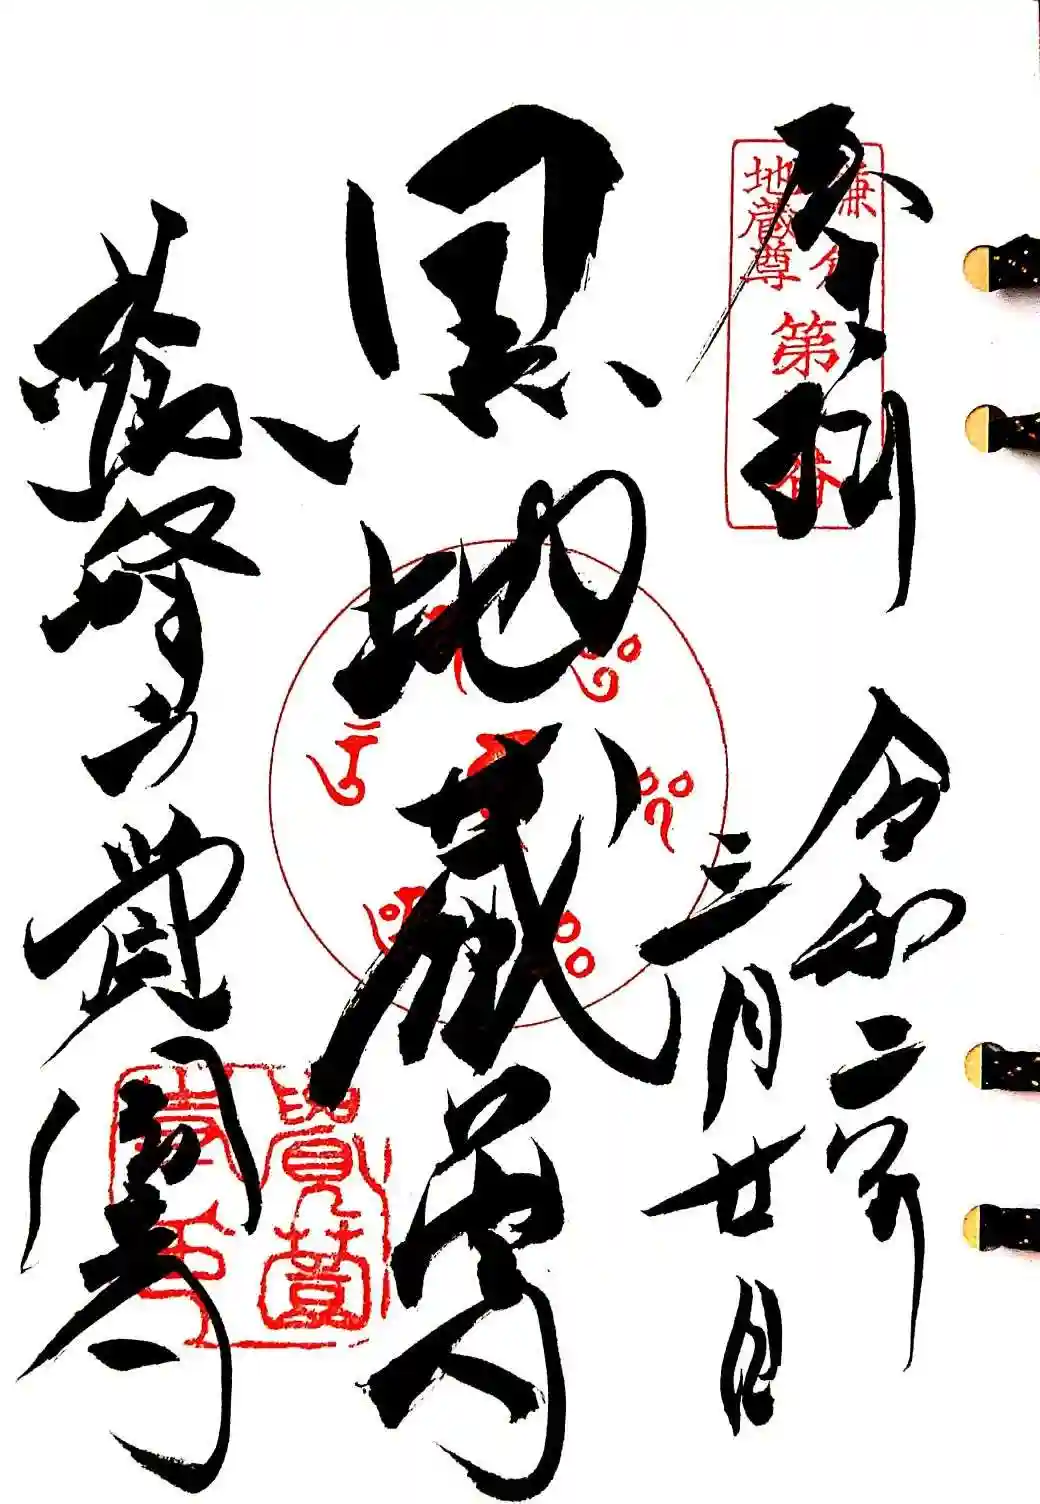 奉拝
鎌倉
地蔵尊
第 番
令和二年
三月廿日
黒地蔵尊
鷲峰山覚園寺